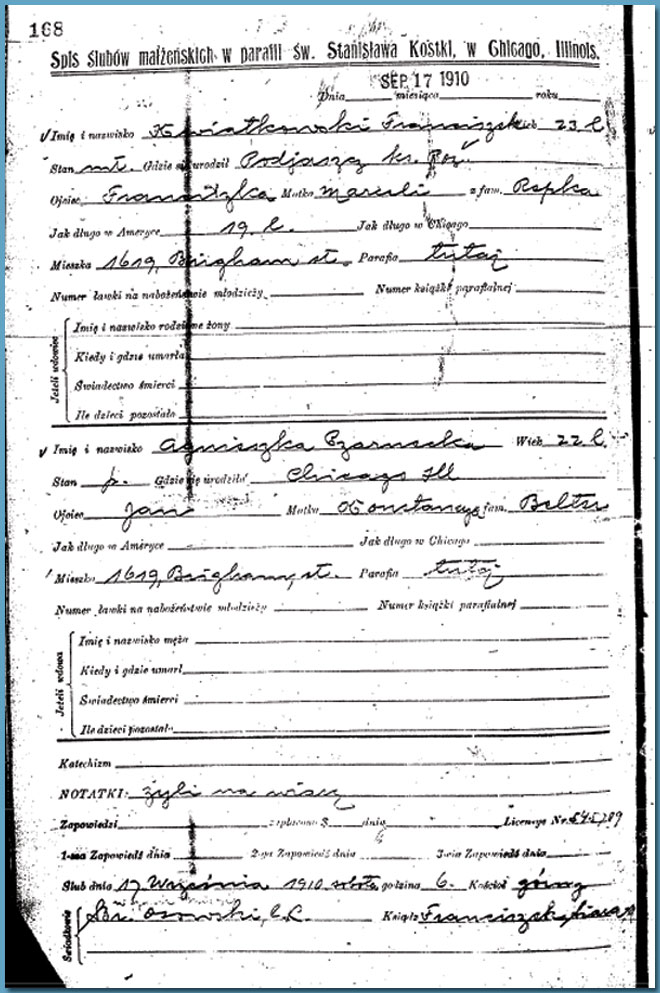 168
Spis ślubów małżeńskich w parafii św. Stanisława Kostki, w Chicago, Illinois.
SEP 17 1910
Dnia miesiąca roku
Imię i nazwisko Kwiatkowski Franciszek Wiek 23 l.
Stan mł. Gdzie się urodził Podjaszcz ks. Poz.
Ojciec Franciszka Matka Marceli z fam. Repka
Jak długo w Ameryce 19. l. Jak długo w Chicago
Mieszka 1619, Brigham st. Parafia tutaj
Numer ławki na nabożeństwie młodzieży Numer książki parafialnej
Jeżeli wdowiec
Imię i nazwisko rodzinne żony
Kiedy i gdzie umarła
Świadectwo śmierci
Ile dzieci pozostało
Imię i nazwisko Agniszka Wiek 22 l.
Stan p. Gdzie się urodziła Chicago Ill
Ojciec Jan Matka Konstancya z fam.
Jak długo w Ameryce Jak długo w Chicago
Mieszka 1619, Brigham, st. Parafia tutaj
Numer ławki na nabożeństwie młodzieży Numer książki parafialnej
Jeżeli wdowa
Imię i nazwisko męża
Kiedy i gdzie umarł
Świadectwo śmierci
Ile dzieci pozostało
Katechizm
NOTATKI: żyli na wiarę
Zapowiedzi zapłacono $ dnia Licensye Nr. 545789
1-sza Zapowiedź dnia 2-ga Zapowiedź dnia 3-cia Zapowiedź dnia
Ślub dnia 17 Września 1910 sobota, godzina 6. Kościół górny
Świadkowie
Br. Osowski, C.R. Ksiądz Franciszek